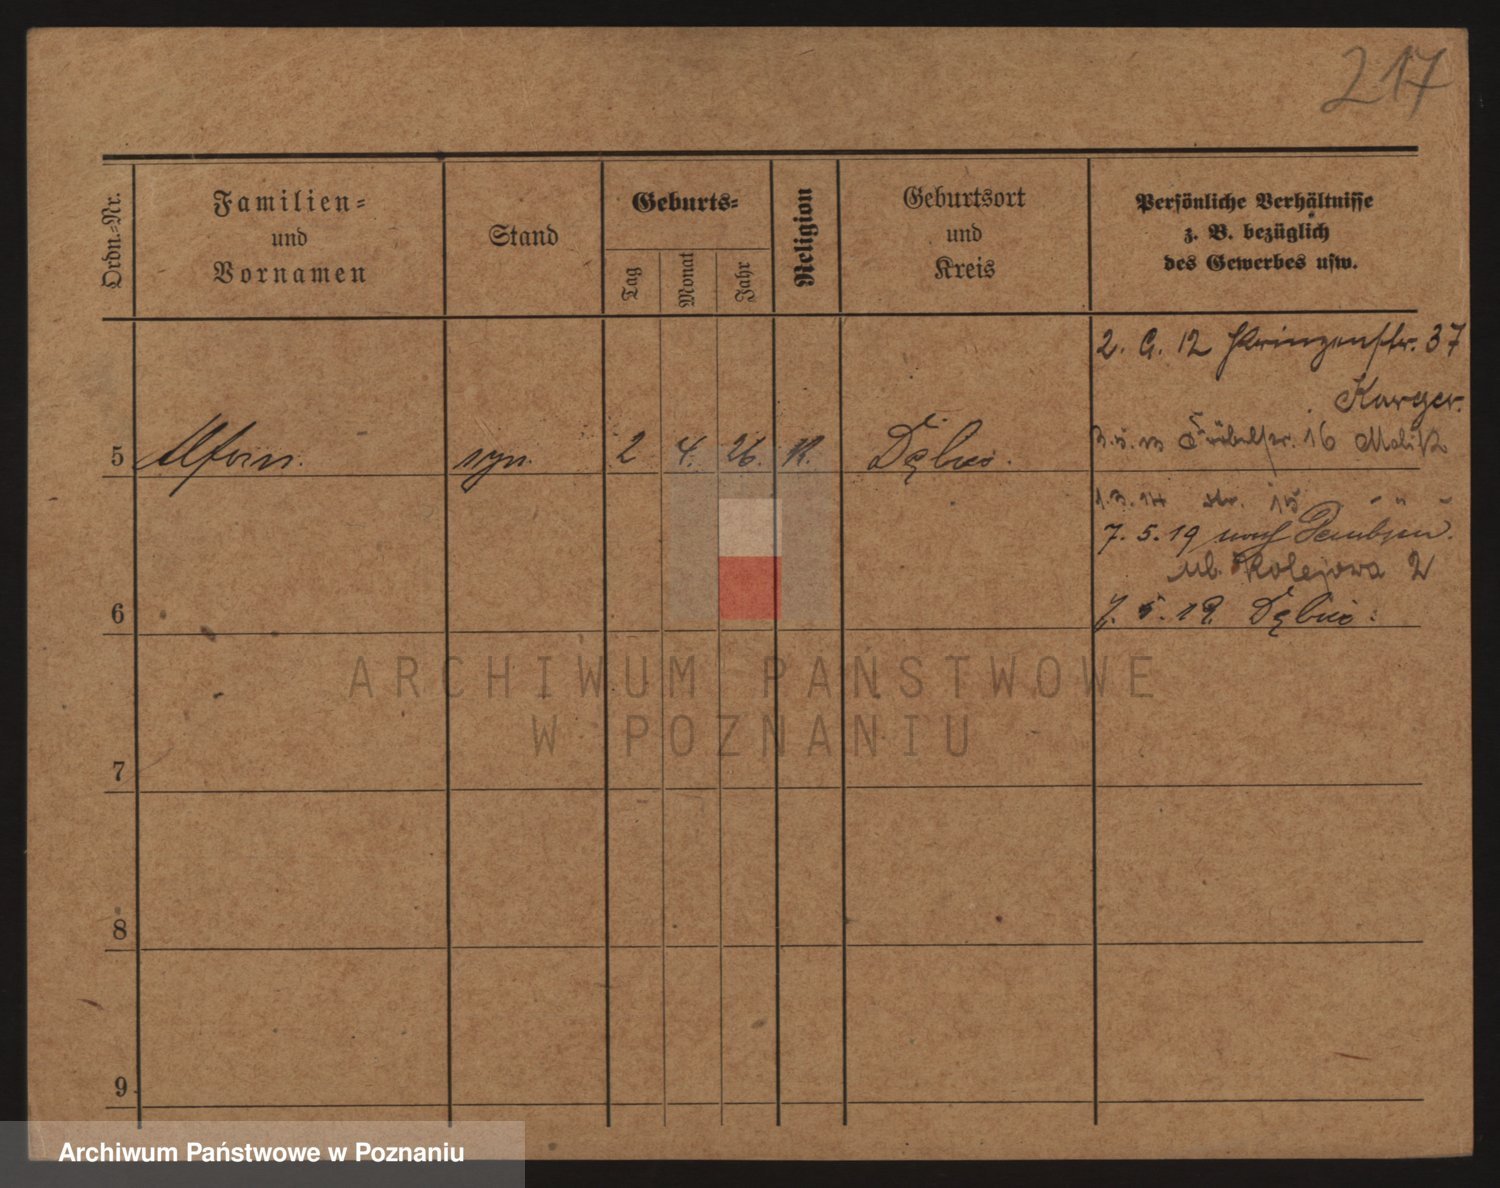 217
Ordn.-Nr.
Familien-
und
Vornamen
Stand
Geburts-
Tag
Monat
Jahr
Religion
Geburtsort
und
Kreis
Persönliche Verhältnisse
z. B. bezüglich
des Gewerbes usw.
2. 12 Prinzenstr. 37
Karger.
5 syn. 2 4. 26.
16
15 " " "
7. 5. 19 nach
ul. Kolejowa 2
6
7. 5. 19.
ARCHIWUM PAŃSTWOWE
W POZNANIU
7
8
9
Archiwum Państwowe w Poznaniu